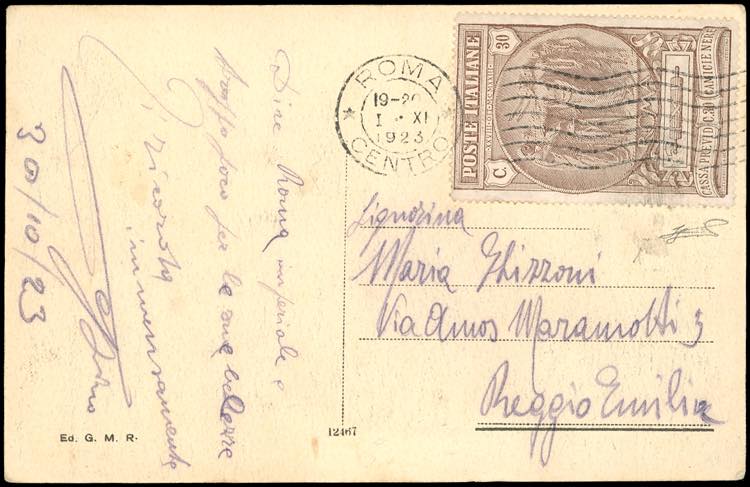 Dire Roma imperiale e
troppo poco per le sue bellezze
Ti ricorda
immensamente
30/10/23
Ed. G. M. R.
12467
ROMA
19-20
1 · XI
1923
CENTRO
POSTE ITALIANE
C. 30
ROMA
CASSA PREVID. C. 30 CAMICIE NERE
Signorina
Maria Ghizzoni
Via Amos Maramotti 3
Reggio Emilia